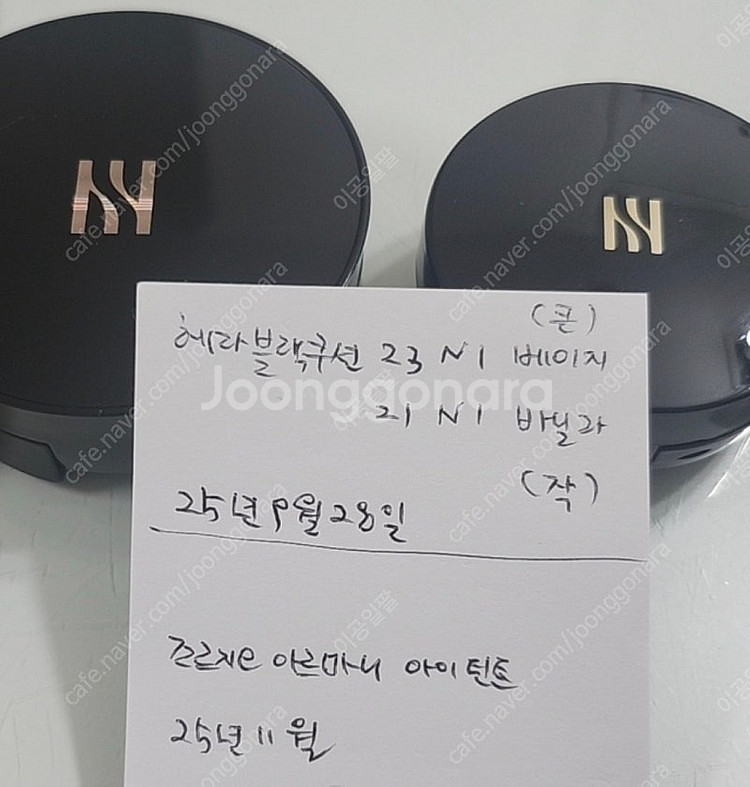 (큰)
헤라블랙쿠션 23 N1 베이지
Joonggonara
21 N1 바닐라
(작)
25년 9월 28일
조르지오 아르마니 아이틴트
25년 11월
cafe.naver.com/joonggonara
이공일팔